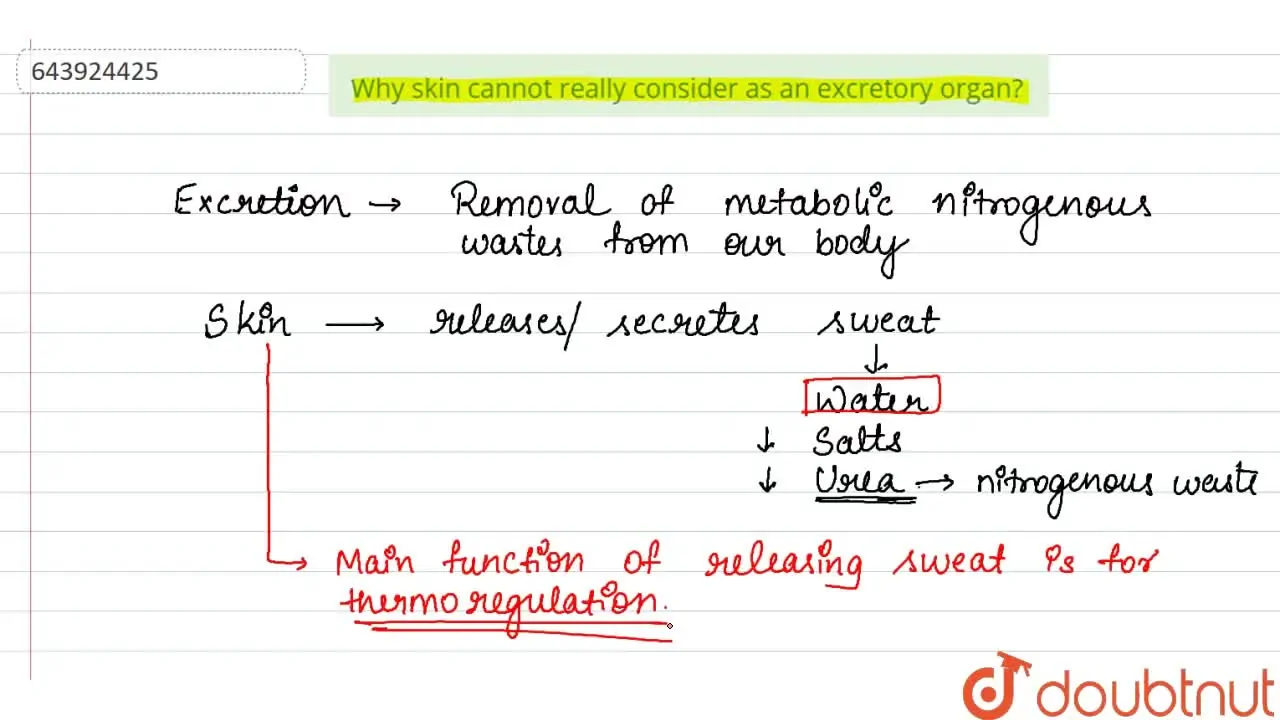 643924425
Why skin cannot really consider as an excretory organ?
Excretion → Removal of metabolic nitrogenous
wastes from our body
Skin → releases/ secretes sweat
↓
Water
↓ Salts
↓ Urea → nitrogenous waste
→ Main function of releasing sweat is for
thermoregulation.
doubtnut